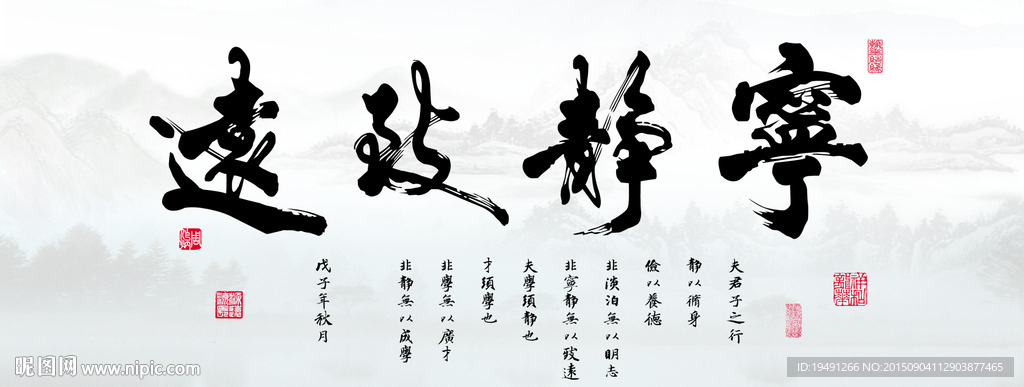 寧靜致遠
夫君子之行
靜以脩身
儉以養德
非淡泊無以明志
非寧靜無以致遠
夫學須靜也
才須學也
非學無以廣才
非靜無以成學
戊子年秋月
昵图网 www.nipic.com
ID:19491266 NO:20150904112903877465